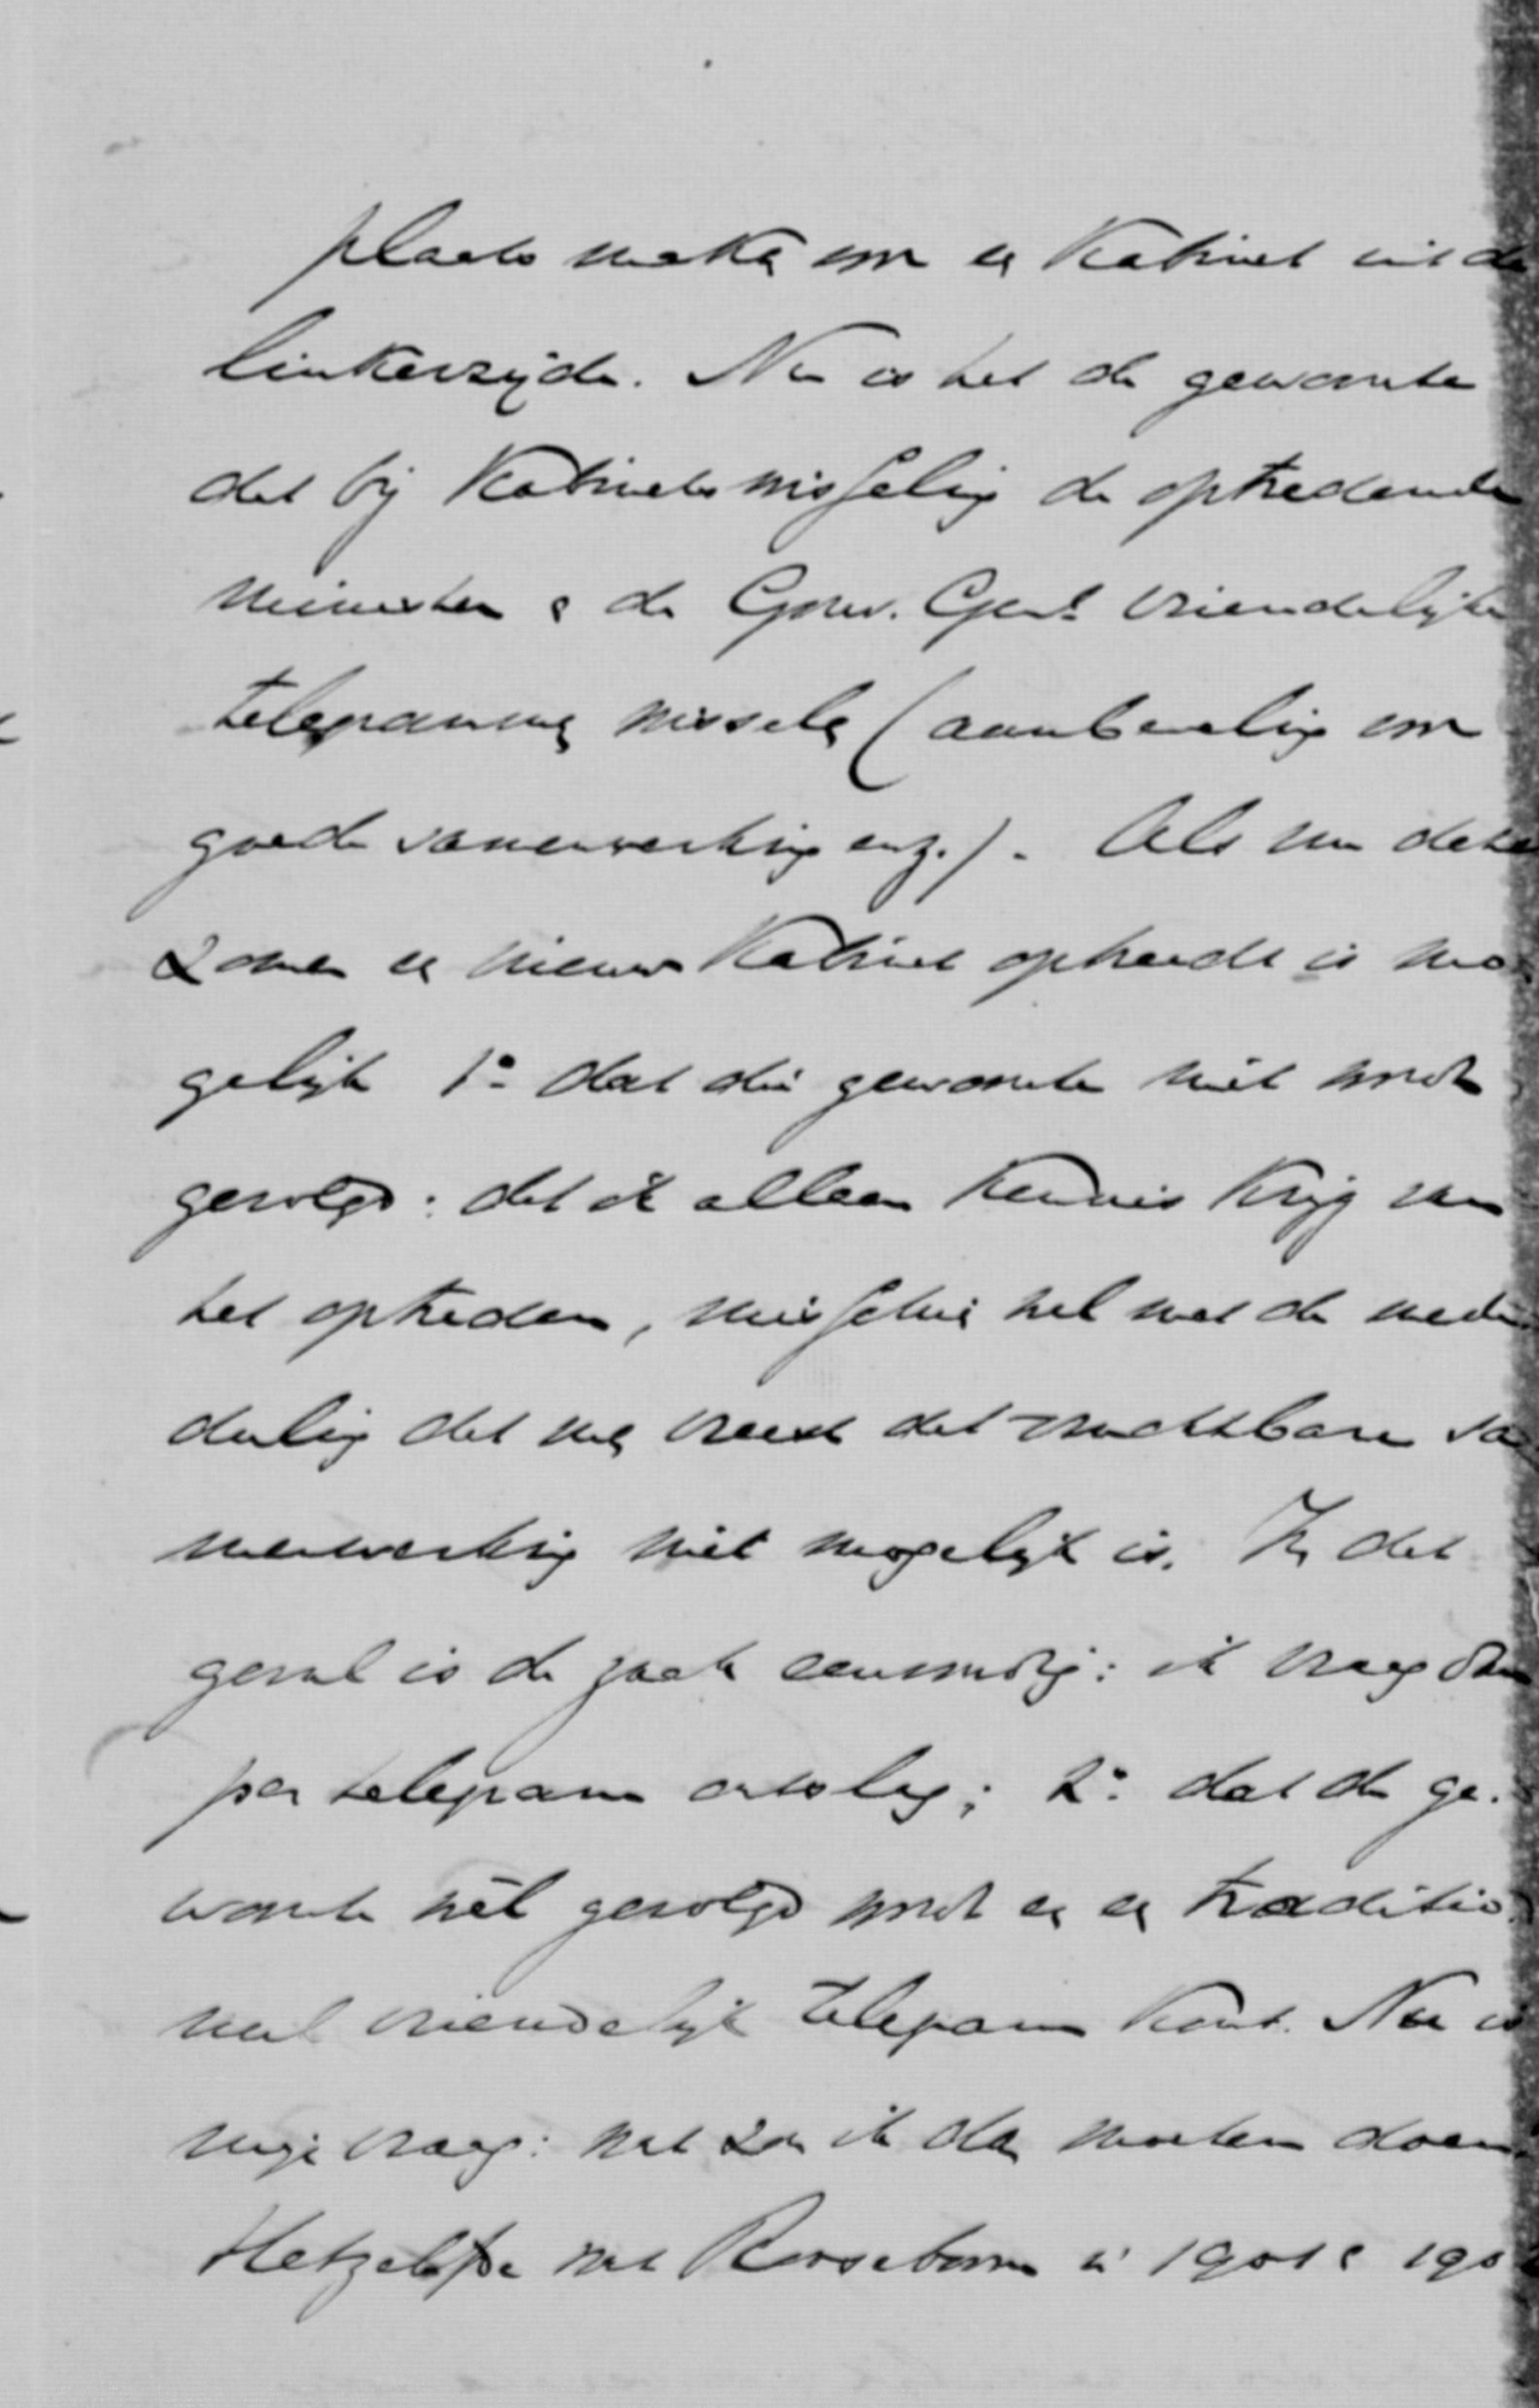 plaats maken voor een Kabinet uit de
linkerzijde. Nu is het de gewoonte
dat bij Kabinetswisseling de optredende
minister & de Gouv. Genl vriendelijke
telegrammen wisselen (aanbeveling voor
goede samenwerking enz.). Als nu deze
zomer een nieuw Kabinet optreedt is mo-
gelijk 1o dat die gewoonte niet wordt
gevolgd: dat ik alleen kennis krijg van
het optreden, misschien wel met de mede-
deeling dat men vreest dat vruchtbare sa-
menwerking niet mogelijk is. In dat
geval is de zaak eenvoudig: ik vraag dan
per telegram ontslag; 2o dat de ge-
woonte wèl gevolgd wordt en een traditio-
neel vriendelijk telegram komt. Nu is
mijn vraag: wat zou ik dan moeten doen.
Hetzelfde wat Rooseboom in 1901 & 190